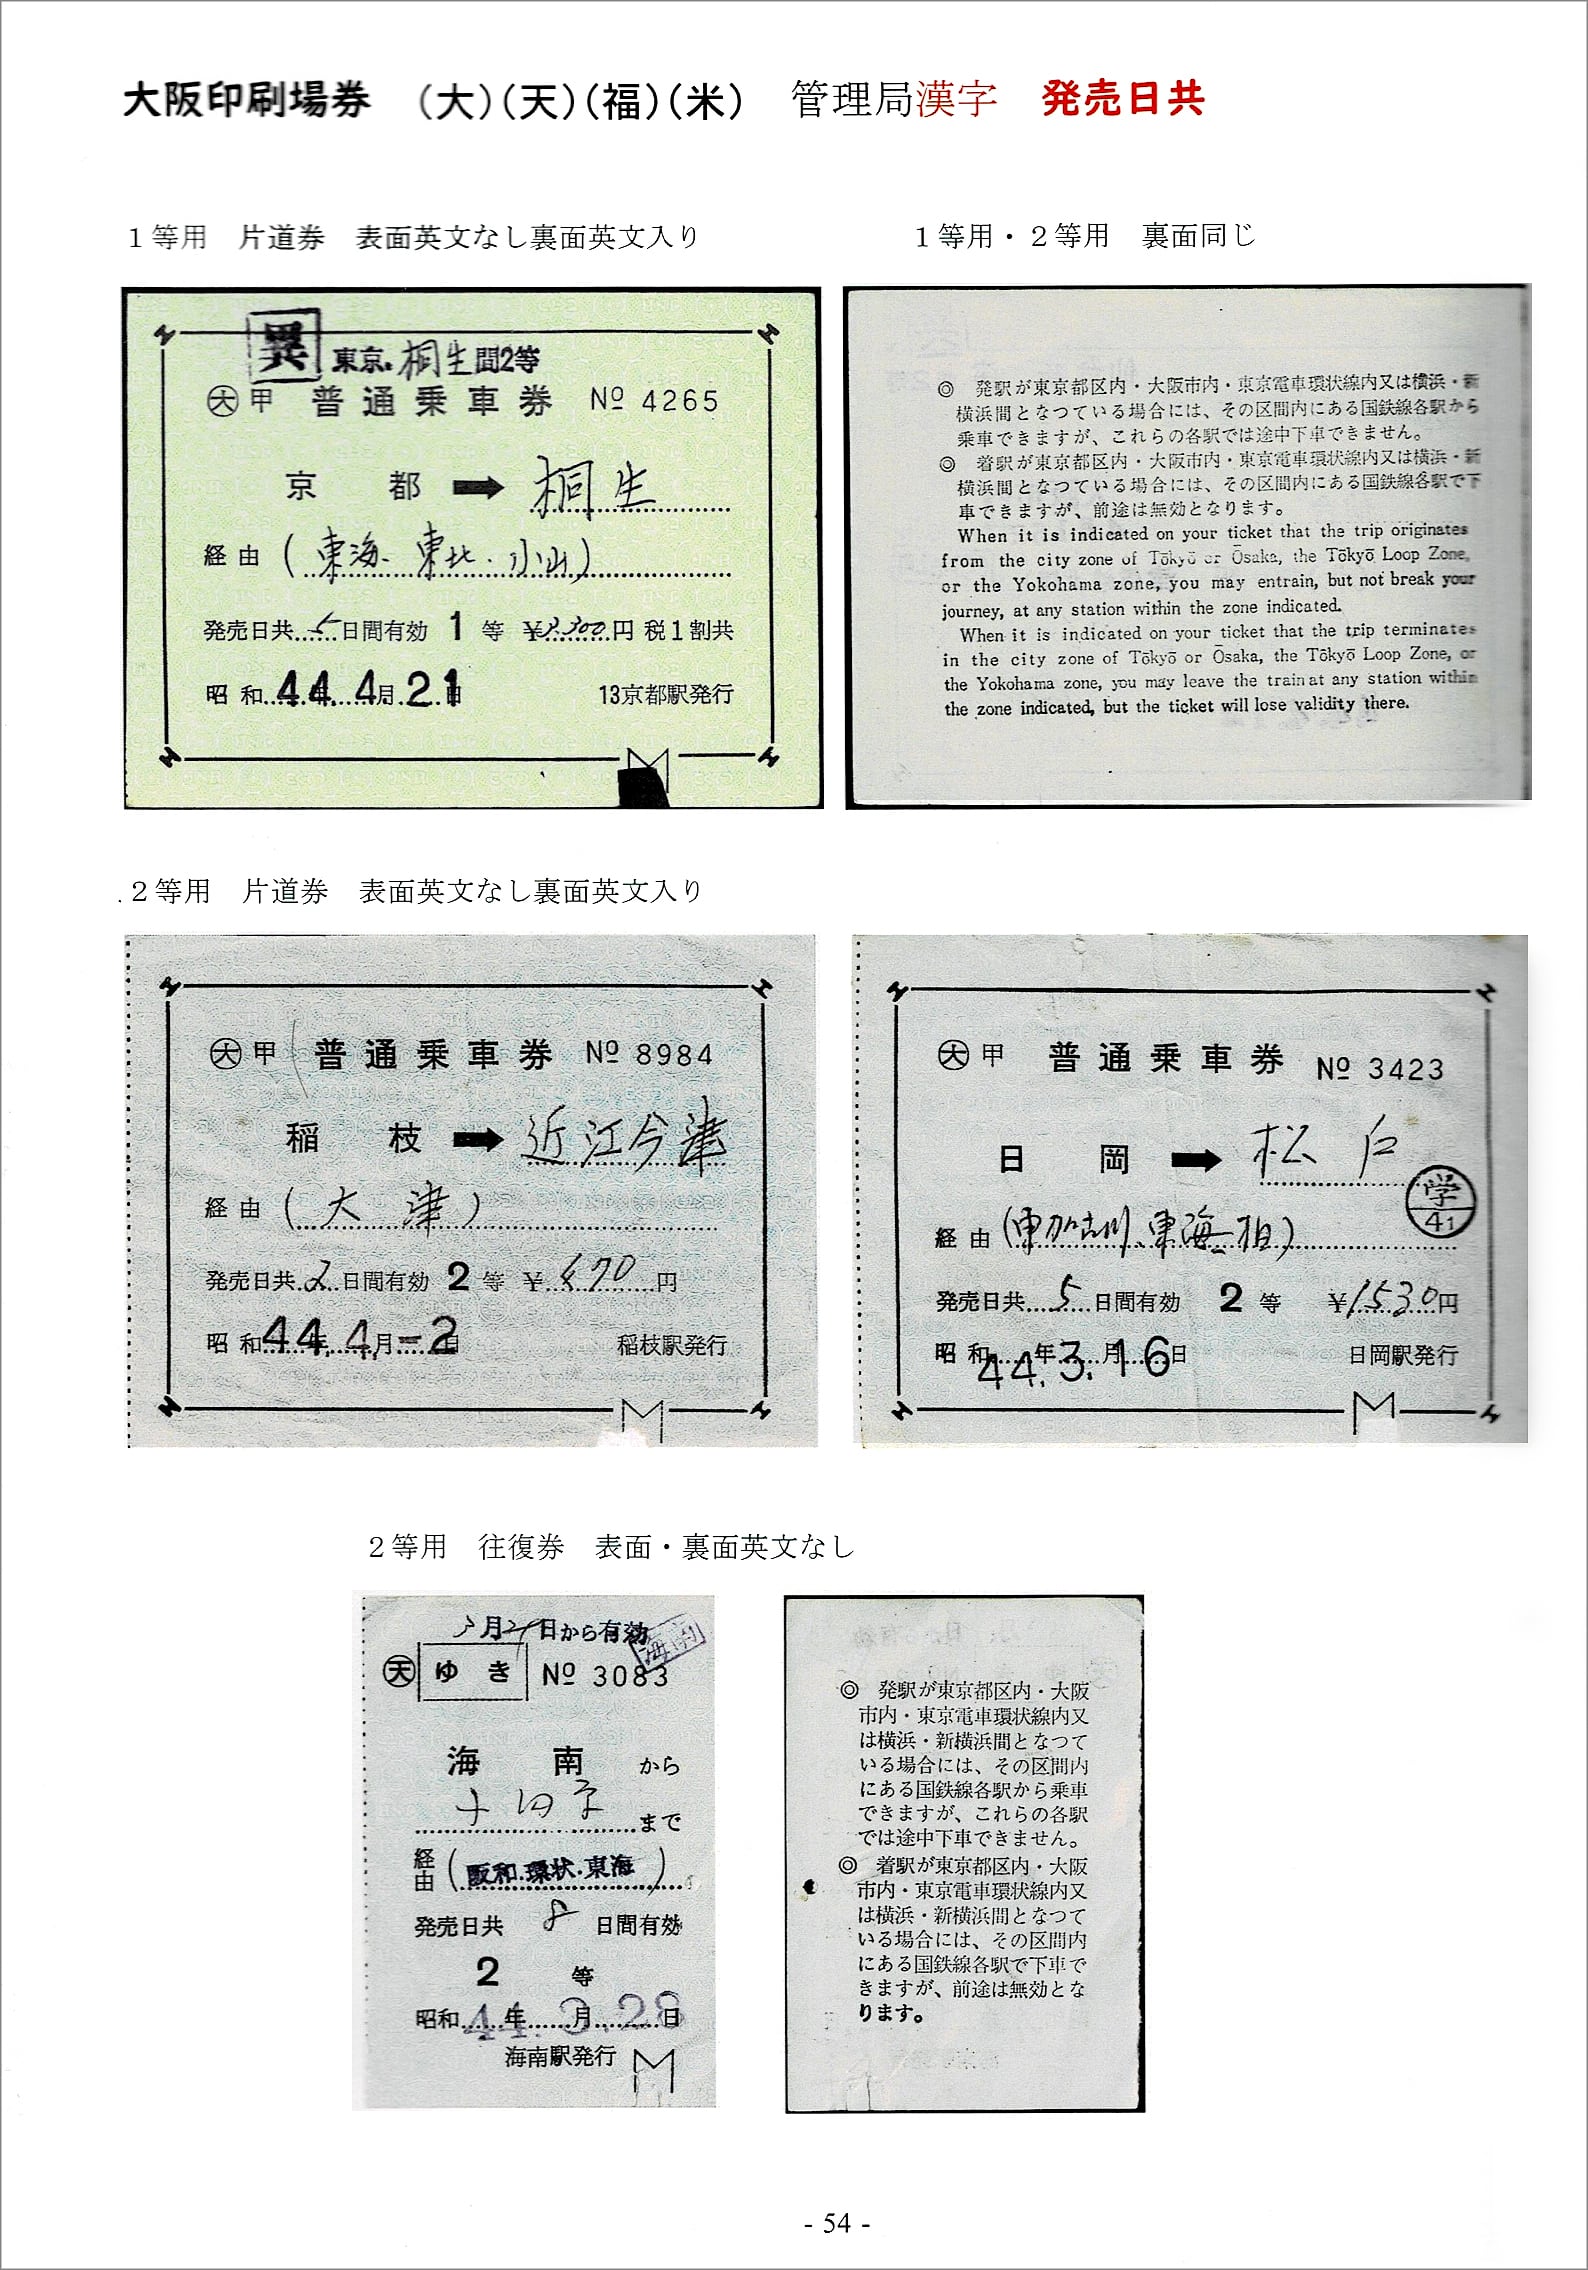 大阪印刷場券　（大）（天）（福）（米）　管理局漢字　発売日共
１等用　片道券　表面英文なし裏面英文入り
１等用・２等用　裏面同じ
異
東京. 桐生間2等
大 甲 普通乗車券 Nº 4265
京都 ➡ 桐生
経由（東海、東北・小山）
発売日共 5 日間有効 1 等 ¥2300円 税1割共
昭和 44年 4月 21日 13京都駅発行
◎　発駅が東京都区内・大阪市内・東京電車環状線内又は横浜・新
横浜間となつている場合には、その区間内にある国鉄線各駅から
乗車できますが、これらの各駅では途中下車できません。
◎　着駅が東京都区内・大阪市内・東京電車環状線内又は横浜・新
横浜間となつている場合には、その区間内にある国鉄線各駅で下
車できますが、前途は無効となります。
When it is indicated on your ticket that the trip originates
from the city zone of Tōkyō or Ōsaka, the Tōkyō Loop Zone,
or the Yokohama zone, you may entrain, but not break your
journey, at any station within the zone indicated.
When it is indicated on your ticket that the trip terminates
in the city zone of Tōkyō or Ōsaka, the Tōkyō Loop Zone, or
the Yokohama zone, you may leave the train at any station within
the zone indicated, but the ticket will lose validity there.
２等用　片道券　表面英文なし裏面英文入り
大 甲 普通乗車券 Nº 8984
稲枝 ➡ 近江今津
経由（大津）
発売日共 2 日間有効 2 等 ¥ 470 円
昭和 44年 4月 -2日 稲枝駅発行
大 甲 普通乗車券 Nº 3423
日岡 ➡ 松戸
学
41
経由（東加古川、東海
発売日共 5 日間有効 2 等 ¥1530円
昭和 44年 3月 16日 日岡駅発行
２等用　往復券　表面・裏面英文なし
3月29日から有効
海南
天 ゆき Nº 3083
海南から
まで
経由（阪和.環状.東海）
発売日共 8 日間有効
2 等
昭和 44年 3月 28日
海南駅発行
◎　発駅が東京都区内・大阪
市内・東京電車環状線内又
は横浜・新横浜間となつて
いる場合には、その区間内
にある国鉄線各駅から乗車
できますが、これらの各駅
では途中下車できません。
◎　着駅が東京都区内・大阪
市内・東京電車環状線内又
は横浜・新横浜間となつて
いる場合には、その区間内
にある国鉄線各駅で下車で
きますが、前途は無効とな
ります。
- 54 -